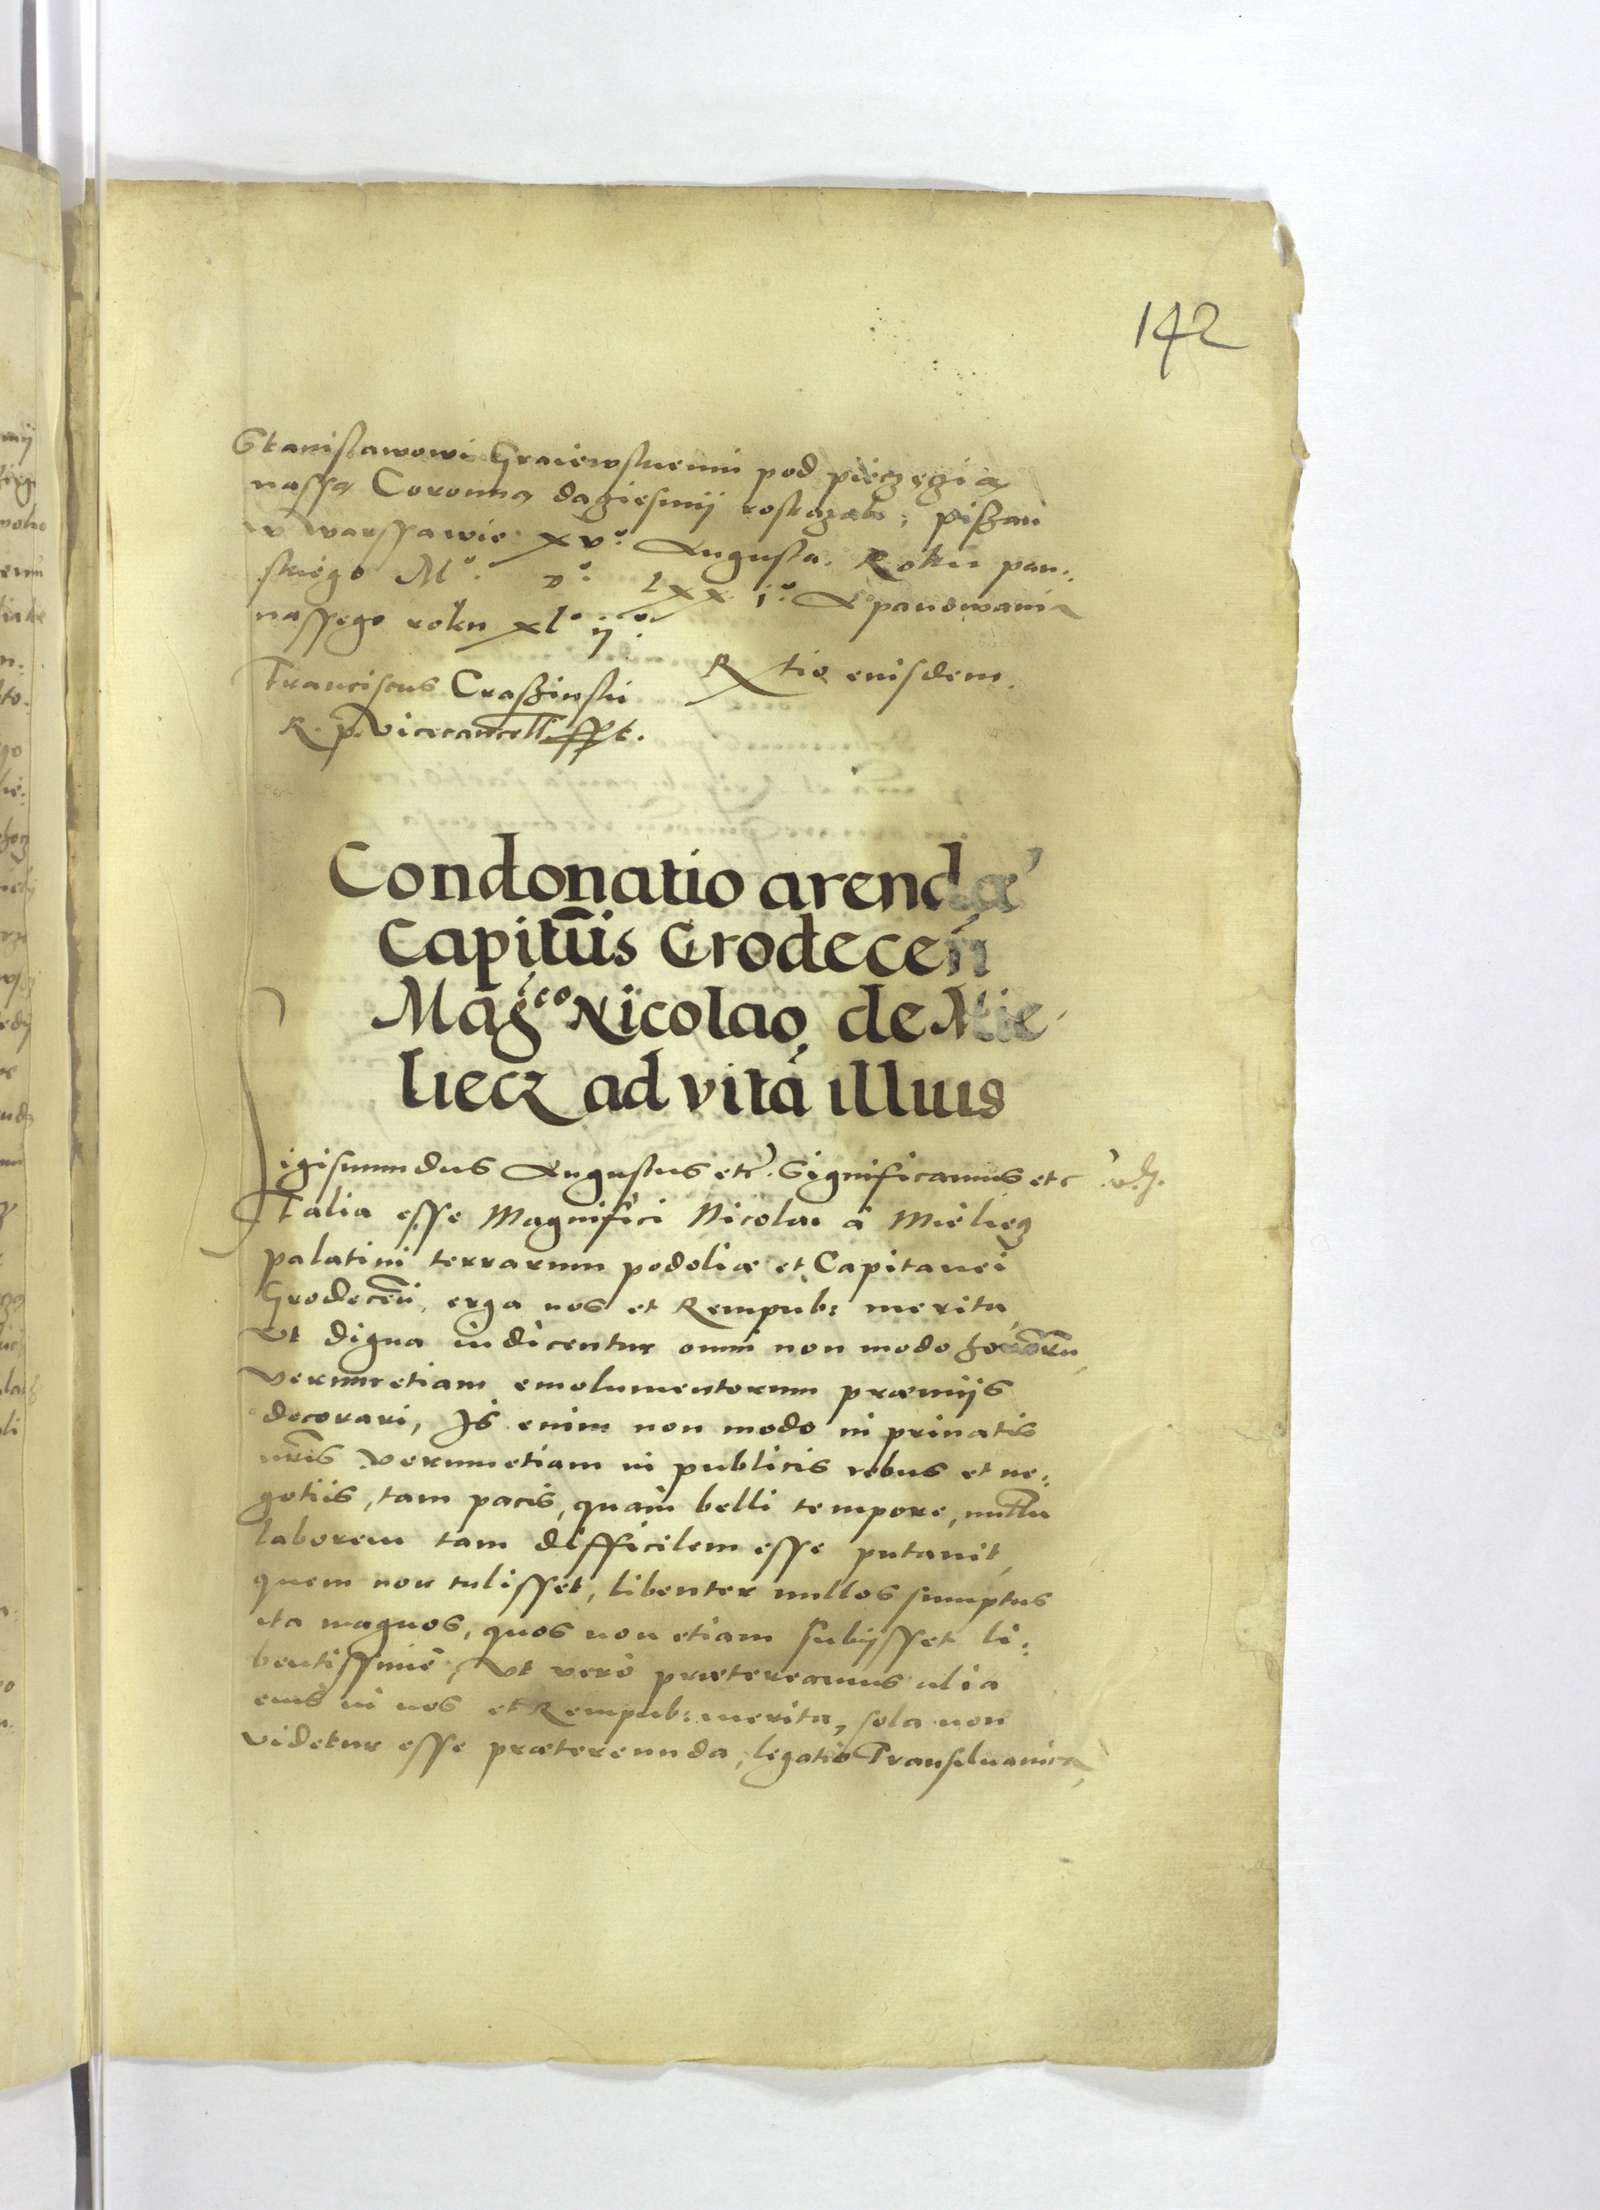 142
Stanisławowi Graiewskiemu pod pieczęgią
nassą Coronną dagiesmy roskazali; piszan
w warssawie xvº Augusta. Roku pan:
skiego Mº. Dº. Lxx iº. A panowania
nassego roku xlº ijº.
Franciscus Crasżinski R tio eiusdem.
R. p. Vicecancell. sspt.
Condonatio arendæ
Capitu͞is Grodeceń
Mag͞co Nicolao de Mie
liecz ad vitá illius
Sigismundus Augustus etc. Significamus etc
Talia esse Magnifici Nicolai à Mielież
palatini terrarum podoliæ et Capitanei
Grodeceń, erga nos et Rempub: merita,
Vt digna iudicentur omni non modo honoru͞,
verumetiam emolumentorum præmijs
decorari, Is enim non modo in priuatis
nr͞is verumetiam in publicis rebus et ne:
gotiis, tam pacis, quàm belli tempore, nullu͞
laborem tam difficilem esse putauit,
quem non tulisset, libenter nullos sumptus
ita magnos, quos non etiam subijsset li:
bentissimè, Vt verò prætereamus alia
eius in nos et Rempub: merita, sola non
videtur esse prætereunda, legatio Transiluanica,